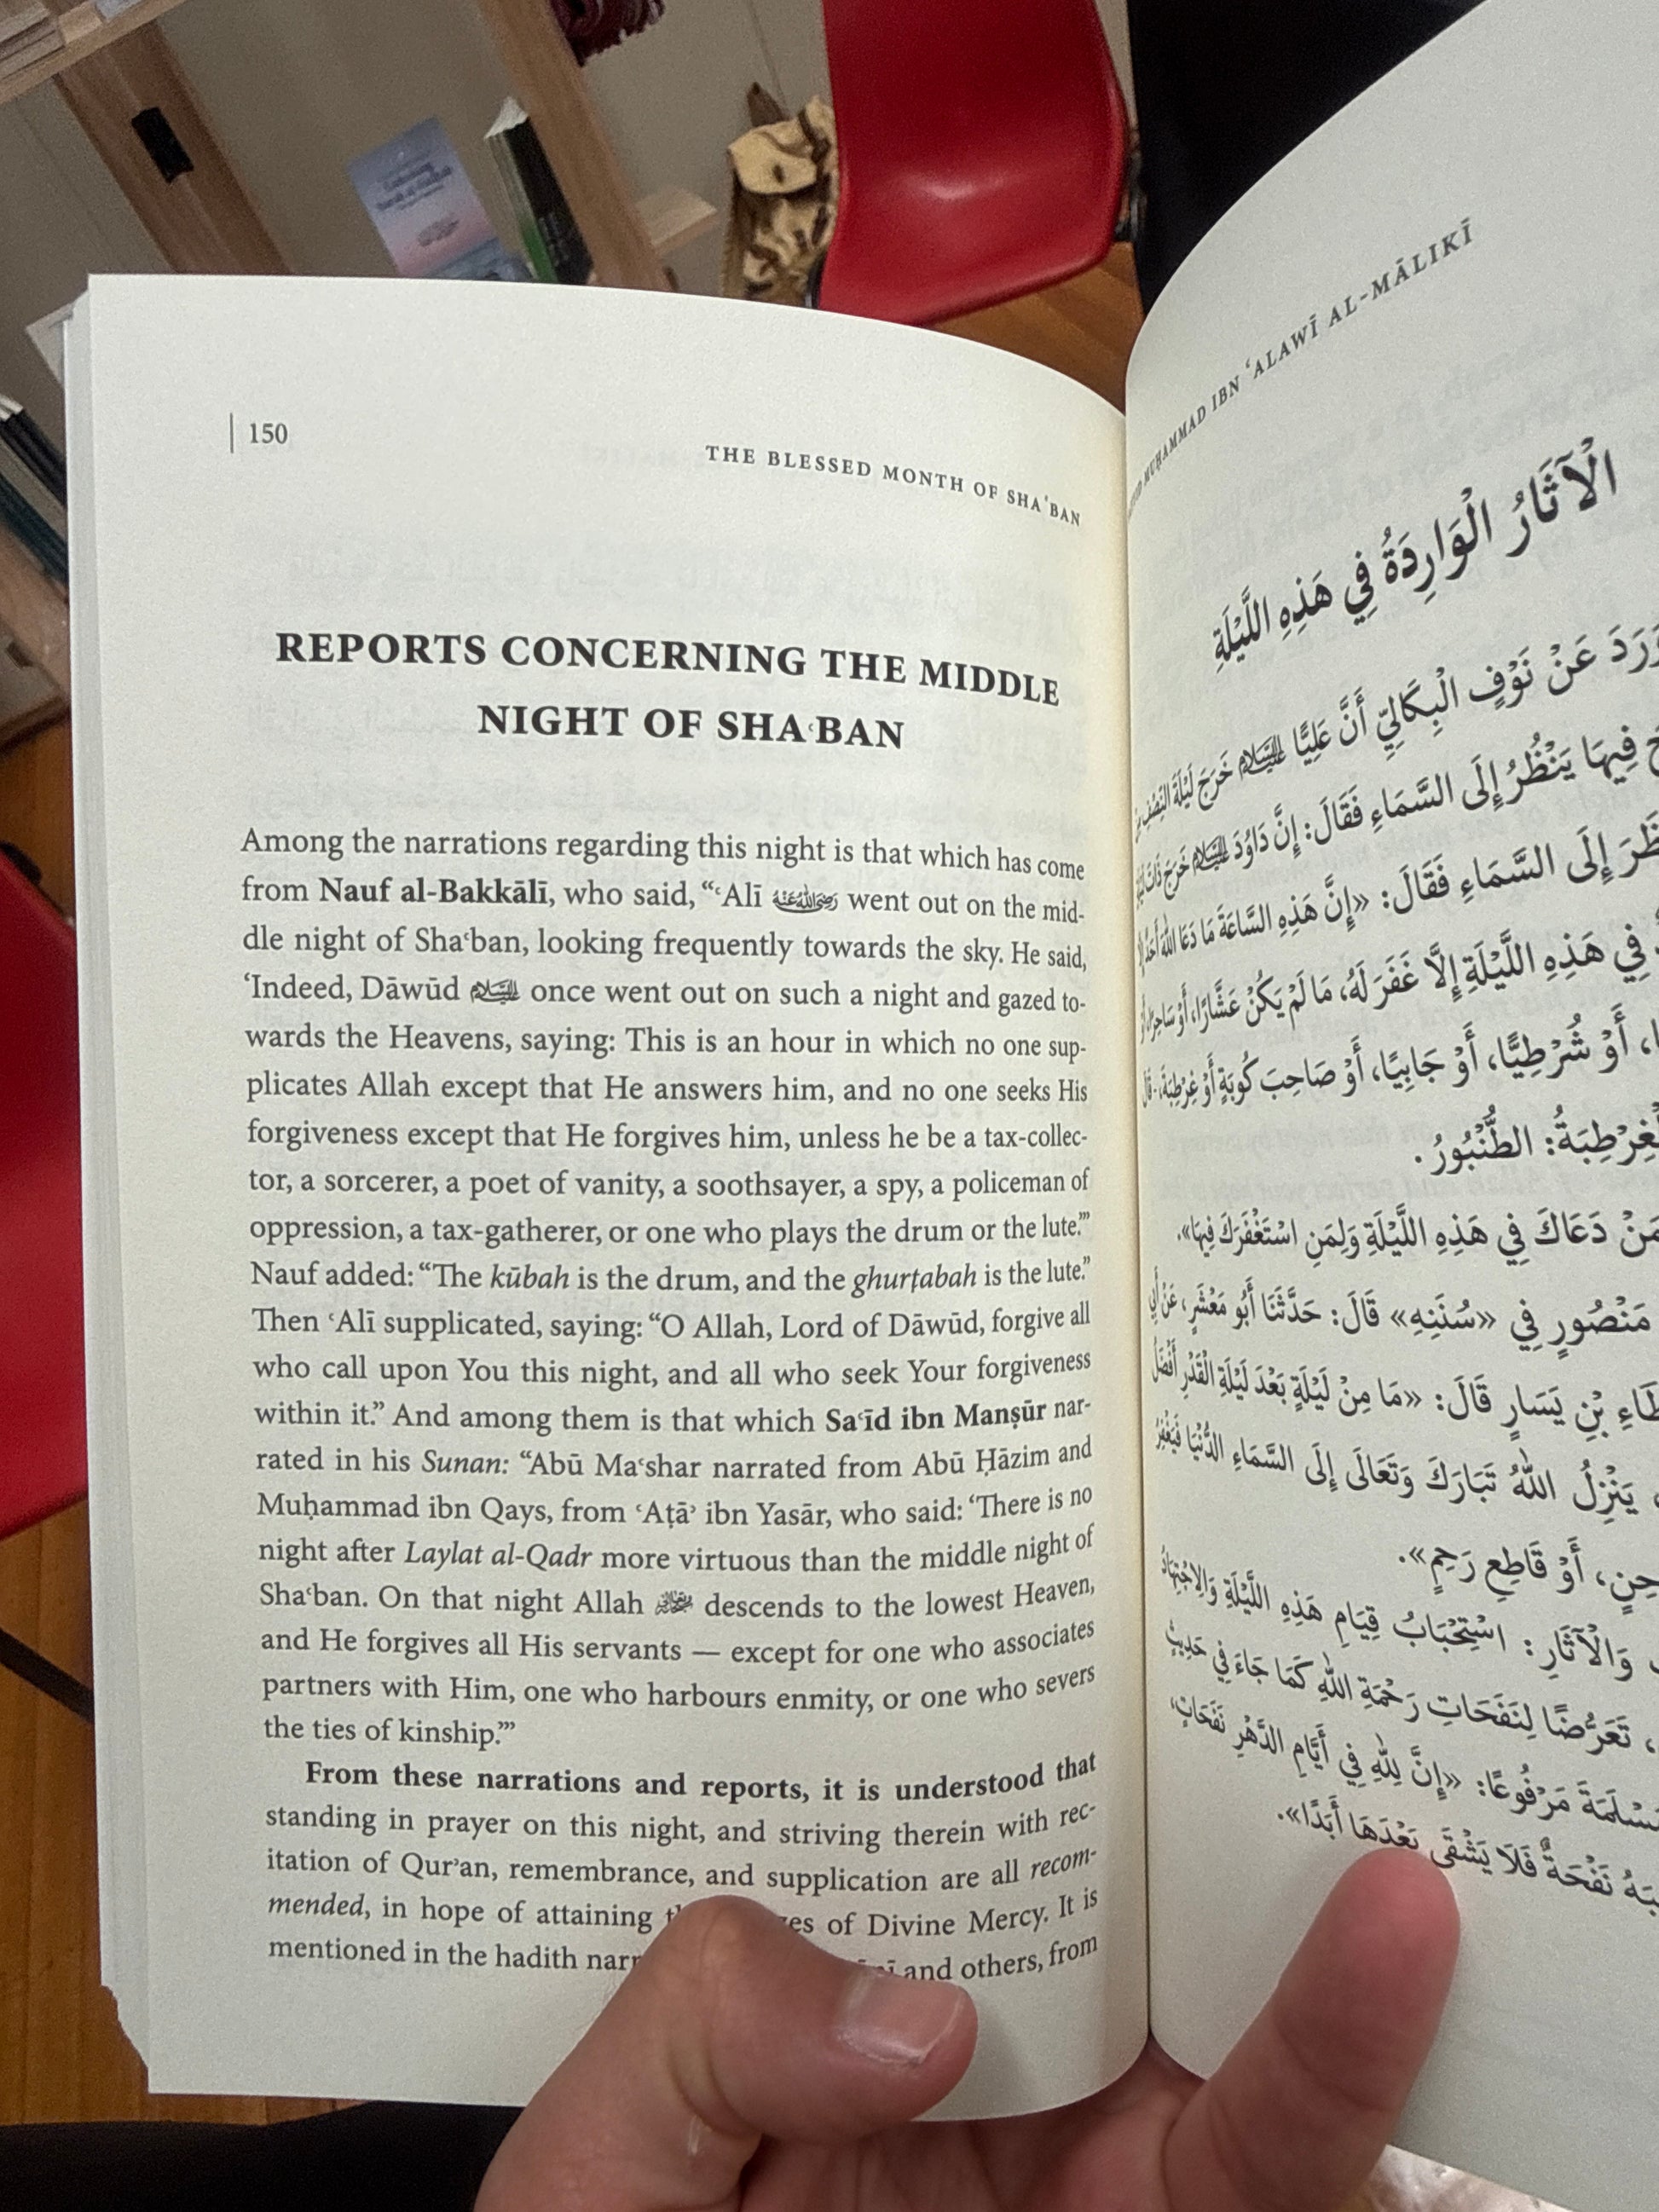 150
THE BLESSED MONTH OF SHAʿBAN
REPORTS CONCERNING THE MIDDLE
NIGHT OF SHAʿBAN
Among the narrations regarding this night is that which has come
from Nauf al-Bakkālī, who said, “ʿAlī رضي الله عنه went out on the mid-
dle night of Shaʿban, looking frequently towards the sky. He said,
‘Indeed, Dāwūd عليه السلام once went out on such a night and gazed to-
wards the Heavens, saying: This is an hour in which no one sup-
plicates Allah except that He answers him, and no one seeks His
forgiveness except that He forgives him, unless he be a tax-collec-
tor, a sorcerer, a poet of vanity, a soothsayer, a spy, a policeman of
oppression, a tax-gatherer, or one who plays the drum or the lute.’”
Nauf added: “The kūbah is the drum, and the ghurṭabah is the lute.”
Then ʿAlī supplicated, saying: “O Allah, Lord of Dāwūd, forgive all
who call upon You this night, and all who seek Your forgiveness
within it.” And among them is that which Saʿīd ibn Manṣūr nar-
rated in his Sunan: “Abū Maʿshar narrated from Abū Ḥāzim and
Muḥammad ibn Qays, from ʿAṭāʾ ibn Yasār, who said: ‘There is no
night after Laylat al-Qadr more virtuous than the middle night of
Shaʿban. On that night Allah descends to the lowest Heaven,
and He forgives all His servants — except for one who associates
partners with Him, one who harbours enmity, or one who severs
the ties of kinship.’”
From these narrations and reports, it is understood that
standing in prayer on this night, and striving therein with rec-
itation of Qurʾan, remembrance, and supplication are all recom-
mended, in hope of attaining of Divine Mercy. It is
mentioned in the hadith and others, from
MUḤAMMAD IBN ʿALAWĪ AL-MĀLIKĪ
الْآثَارُ الْوَارِدَةُ فِي هَذِهِ اللَّيْلَةِ
عَنْ نَوْفٍ الْبِكَالِيِّ أَنَّ عَلِيًّا عليه السلام خَرَجَ لَيْلَةَ النِّصْفِ
فِيهَا يَنْظُرُ إِلَى السَّمَاءِ فَقَالَ: إِنَّ دَاوُدَ عليه السلام خَرَجَ ذَاتَ
إِلَى السَّمَاءِ فَقَالَ: «إِنَّ هَذِهِ السَّاعَةَ مَا دَعَا اللهَ أَحَدٌ
فِي هَذِهِ اللَّيْلَةِ إِلَّا غَفَرَ لَهُ، مَا لَمْ يَكُنْ عَشَّارًا، أَوْ سَاحِرًا،
أَوْ شُرْطِيًّا، أَوْ جَابِيًا، أَوْ صَاحِبَ كُوبَةٍ أَوْ غِرْطِبَةٍ،
الطُّنْبُورُ.
دَعَاكَ فِي هَذِهِ اللَّيْلَةِ وَلِمَنِ اسْتَغْفَرَكَ فِيهَا».
مَنْصُورٍ فِي «سُنَنِهِ» قَالَ: حَدَّثَنَا أَبُو مَعْشَرٍ، عَنْ أَبِي
بْنِ يَسَارٍ قَالَ: «مَا مِنْ لَيْلَةٍ بَعْدَ لَيْلَةِ الْقَدْرِ أَفْضَلُ
يَنْزِلُ اللهُ تَبَارَكَ وَتَعَالَى إِلَى السَّمَاءِ الدُّنْيَا فَيَغْفِرُ
أَوْ قَاطِعِ رَحِمٍ».
وَالْآثَارِ: اسْتِحْبَابُ قِيَامِ هَذِهِ اللَّيْلَةِ وَالِاجْتِهَادُ
تَعَرُّضًا لِنَفَحَاتِ رَحْمَةِ اللهِ كَمَا جَاءَ فِي حَدِيثِ
مَرْفُوعًا: «إِنَّ لِلَّهِ فِي أَيَّامِ الدَّهْرِ نَفَحَاتٍ،
نَفْحَةٌ فَلَا يَشْقَى بَعْدَهَا أَبَدًا».